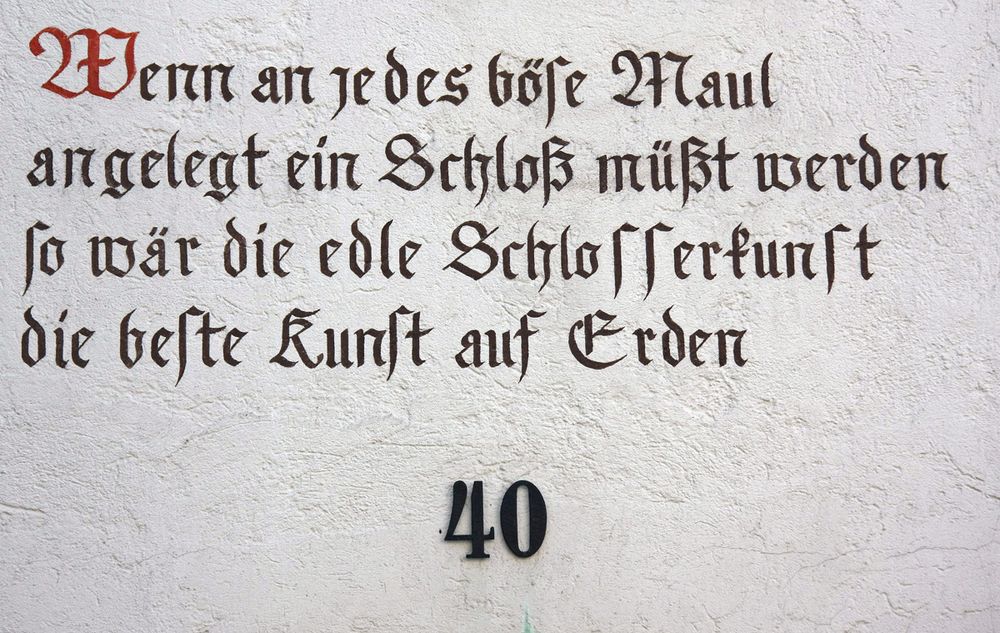 Wenn an jedes böse Maul
angelegt ein Schloß müßt werden
so wär die edle Schlosserkunst
die beste Kunst auf Erden
40